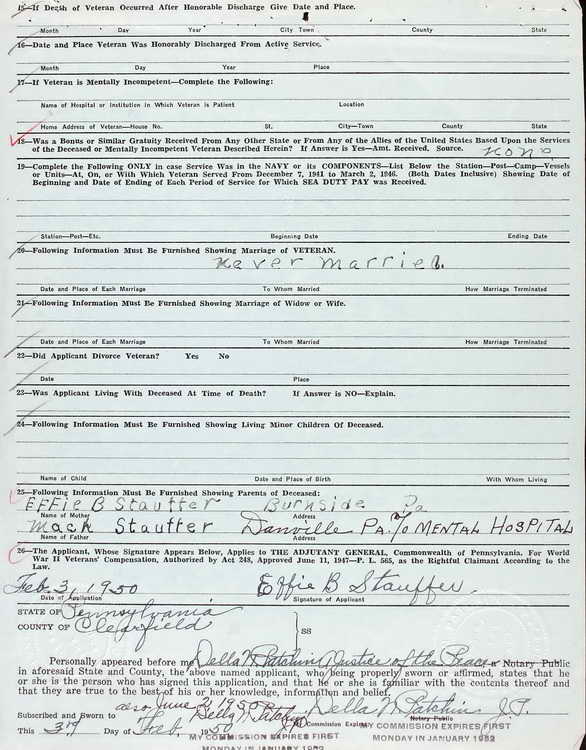 15—If Death of Veteran Occurred After Honorable Discharge Give Date and Place.
Month Day Year City Town County State
16—Date and Place Veteran Was Honorably Discharged From Active Service.
Month Day Year Place
17—If Veteran is Mentally Incompetent—Complete the Following:
Name of Hospital or Institution in Which Veteran is Patient Location
Home Address of Veteran—House No. St. City—Town County State
18—Was a Bonus or Similar Gratuity Received From Any Other State or From Any of the Allies of the United States Based Upon the Services
of the Deceased or Mentally Incompetent Veteran Described Herein? If Answer is Yes—Amt. Received, Source. None
19—Complete the Following ONLY in case Service Was in the NAVY or its COMPONENTS—List Below the Station—Post—Camp—Vessels
or Units—At, On, or With Which Veteran Served From December 7, 1941 to March 2, 1946. (Both Dates Inclusive) Showing Date of
Beginning and Date of Ending of Each Period of Service for Which SEA DUTY PAY was Received.
Station—Post—Etc. Beginning Date Ending Date
20—Following Information Must Be Furnished Showing Marriage of VETERAN.
Never Married.
Date and Place of Each Marriage To Whom Married How Marriage Terminated
21—Following Information Must Be Furnished Showing Marriage of Widow or Wife.
Date and Place of Each Marriage To Whom Married How Marriage Terminated
22—Did Applicant Divorce Veteran? Yes No
Date Place
23—Was Applicant Living With Deceased At Time of Death? If Answer is NO—Explain.
24—Following Information Must Be Furnished Showing Living Minor Children Of Deceased.
Name of Child Date and Place of Birth With Whom Living
25—Following Information Must Be Furnished Showing Parents of Deceased:
Effie B Stauffer Burnside Pa
Name of Mother Address
Mack Stauffer Danville Pa. % MENTAL HOSPITAL
Name of Father Address
26—The Applicant, Whose Signature Appears Below, Applies to THE ADJUTANT GENERAL, Commonwealth of Pennsylvania. For World
War II Veterans' Compensation, Authorized by Act 248, Approved June 11, 1947—P. L. 565, as the Rightful Claimant According to the
Law.
Feb. 3, 1950 Effie B Stauffer
Date of Application Signature of Applicant
STATE OF Pennsylvania
COUNTY OF Clearfield
SS
Personally appeared before me, Della M Patchin Justice of the Peace a Notary Public
in aforesaid State and County, the above named applicant, who being properly sworn or affirmed, states that he
or she is the person who has signed this application, and that he or she is familiar with the contents thereof and
that they are true to the best of his or her knowledge, information and belief.
also June 2, 1950 Della M Patchin J.P.
Subscribed and Sworn to Della M Patchin Commission Expires MY COMMISSION EXPIRES FIRST
Notary Public
This 3rd Day of Feb. 1950 MY COMMISSION EXPIRES FIRST MONDAY IN JANUARY 1952
MONDAY IN JANUARY